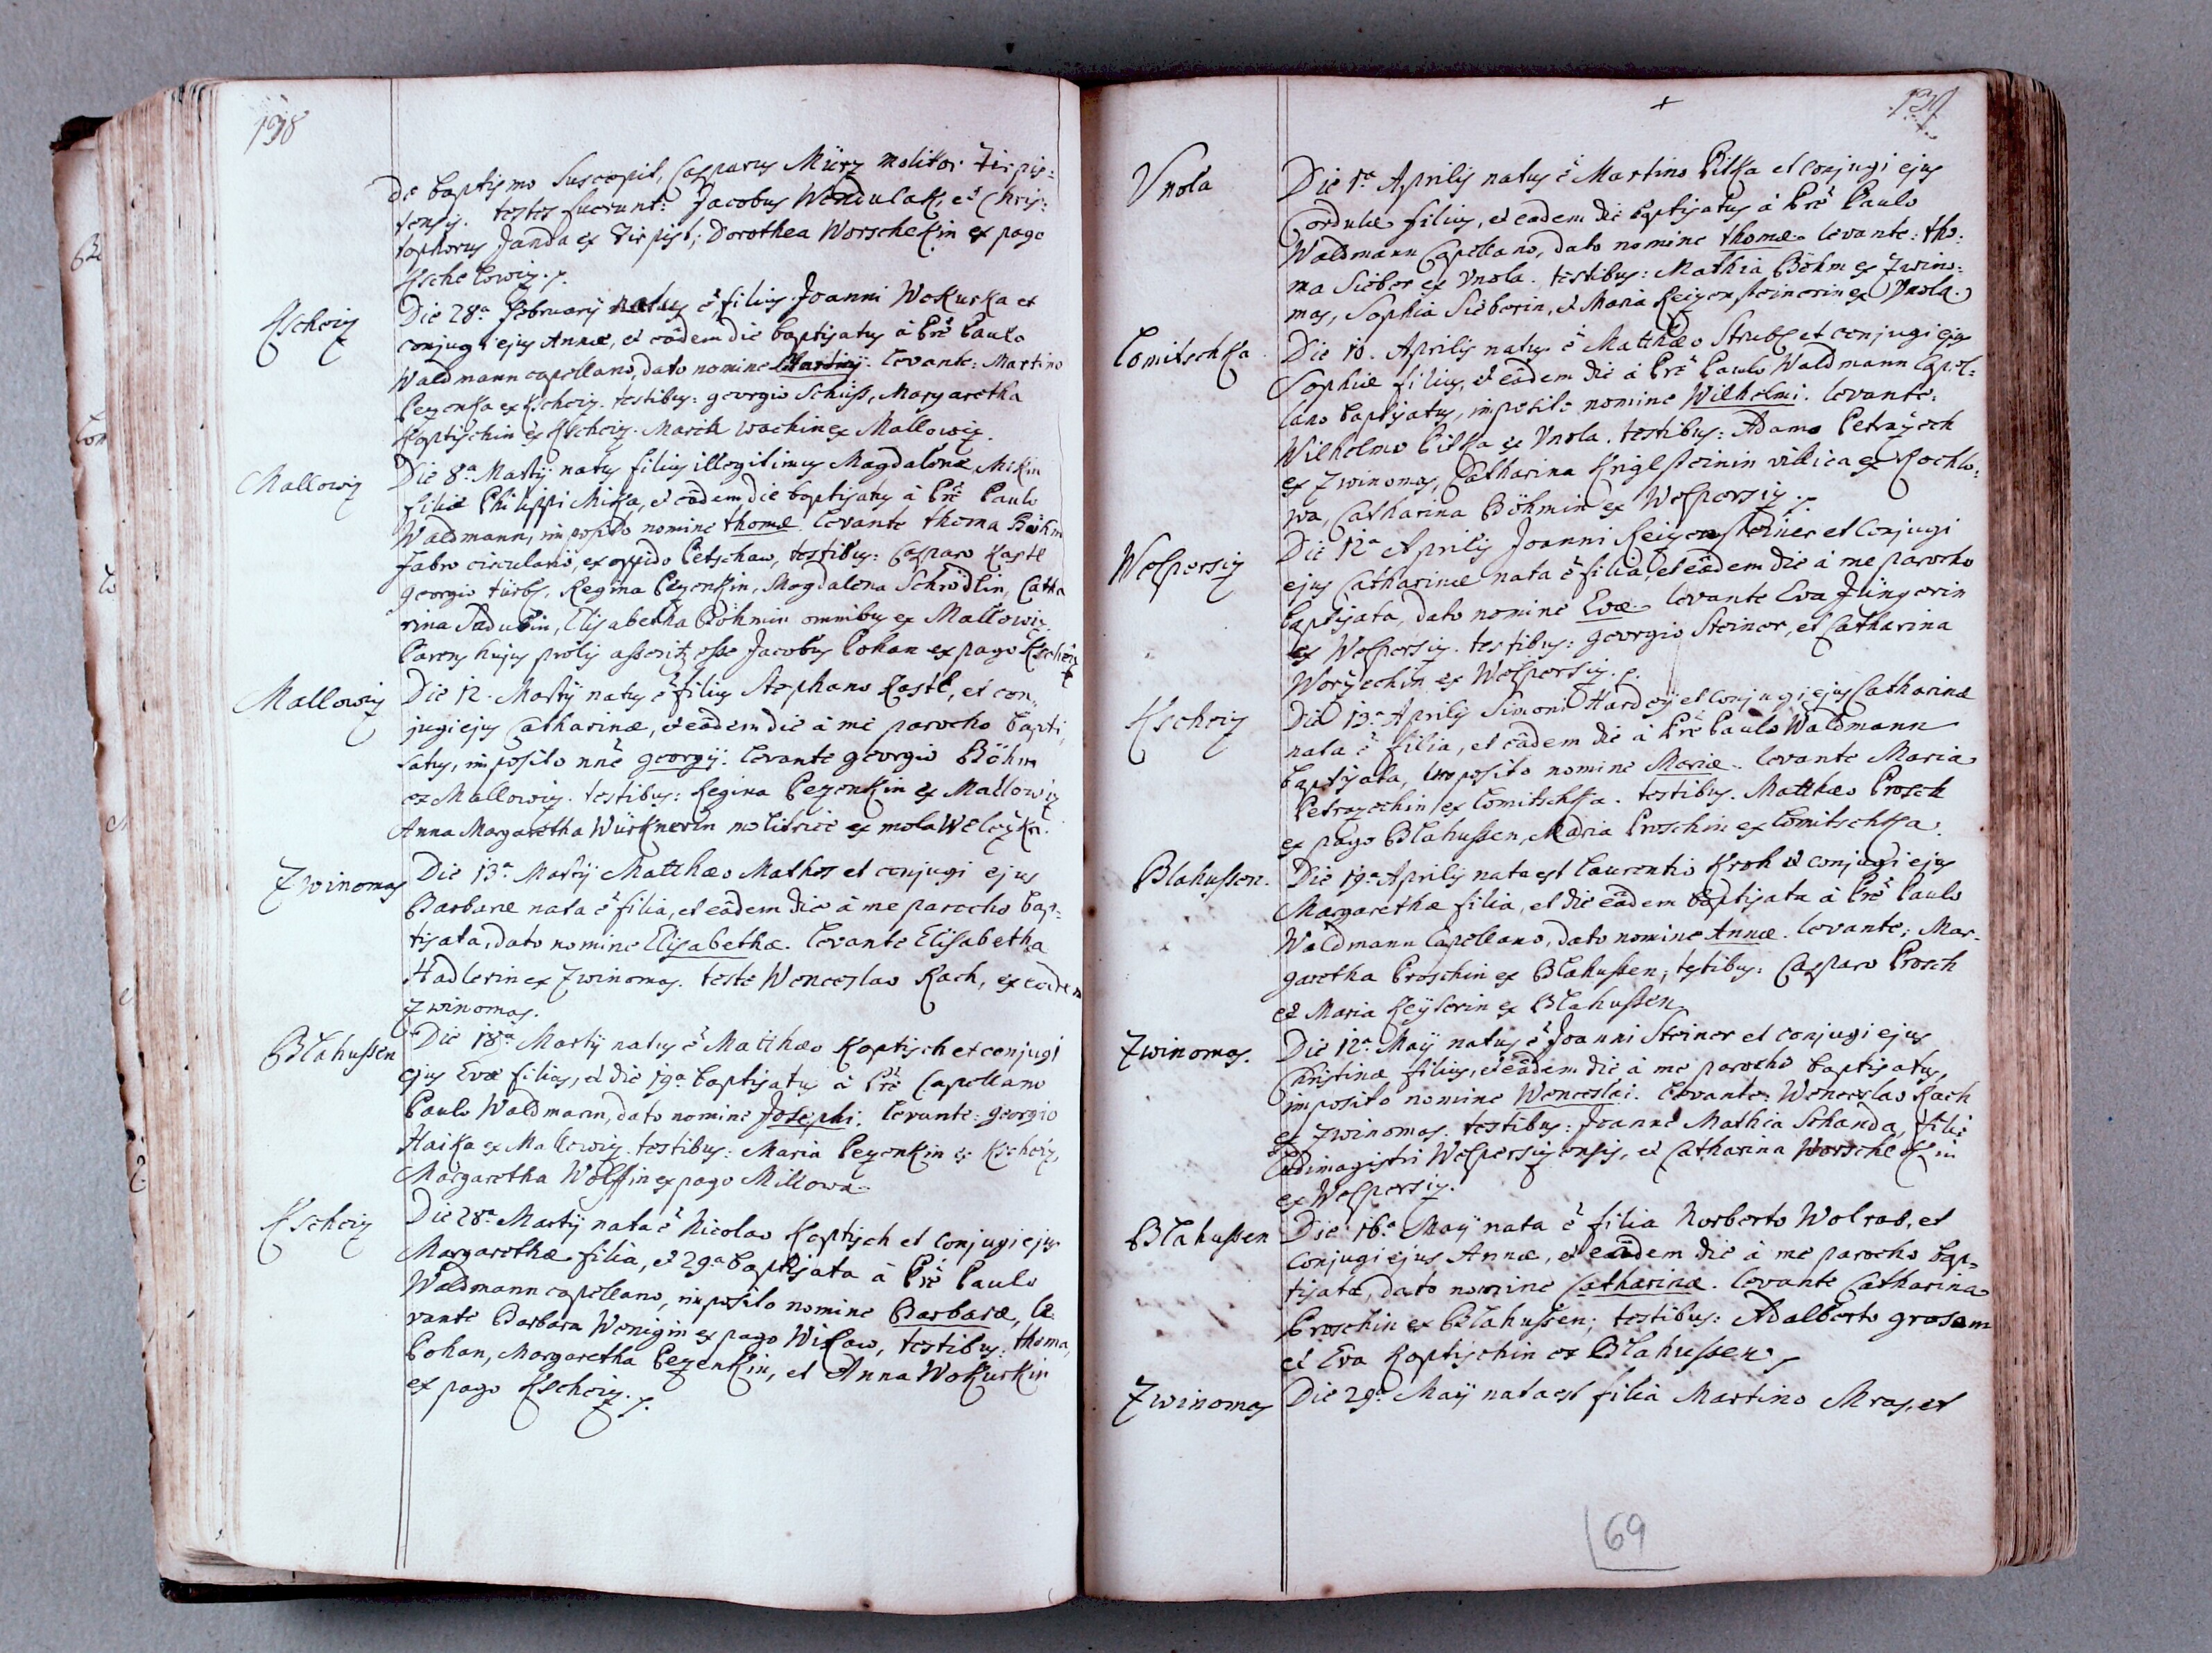 138
de baptismo suscepit, Casparus Mürz molitor Tirpis=
tensis. testes fuerunt: Jacobus Wondulak, et Chris=
tophorus Janda ex Tirpist; Dorothea Worschekin ex pago
Kschelowiz.
Kscheiz
Die 28a February natus ẽ filius Joanni Wokurka et
conjugi ejus Annæ, et eâdem die baptisatus â Prẽ Paulo
Waldmann capellano, dato nomine Martiny. levante: Martino
Pezenka ex Kscheiz. testibus: georgio Schüss, Margaretha
Koptischin ex Kscheiz. Marik wachin ex Mallowiz.
Mallowiz
Die 8a Marty natus filius illegitimus Magdalenæ Mikin
filiæ Philippi Mika, et eâdem die baptisatus â Prẽ Paulo
Waldmann, imposito nomine thomæ. levante thoma Böhm
fabro circulario, ex oppido Petschaw, testibus: Casparo Kastl
georgio türbl, Regina Pezenkin, Magdalena Schrödlin, Catha
rina Sadublin, Elisabetha Böhmin omnibus ex Mallowiz.
Parens hujus prolis asseritur esse Jacobus Pohan ex pago Kscheiz
Mallowiz
Die 12. Marty natus ẽ filius Stephano Kastl, et con,
jugi ejus Catharinæ, et eâdem die â me parocho bapti,
satus, imposito nnẽ georgy. levante georgio Böhm
ex Mallowiz. testibus: Regina Pezenkin ex Mallowiz
Anna Margaretha Würknerin molitrice ex mola Welezkn.
Zwinomas
Die 13a Marty Matthæo Mathes et conjugi ejus
Barbaræ nata ẽ filia, et eâdem die â me parocho bap=
tisata, dato nomine Elisabethæ. levante Elisabetha
Hadlerin ex Zwinomas. teste Wenceslao Kach, ex eâdem
Zwinomas.
Blahussen
Die 18a Marty natus ẽ Matthæo Koptisch et conjugi
ejus Evæ filius, et die 19a baptisatus â Prẽ Capellano
Paulo Waldmann, dato nomine Josephi. levante: georgio
Haika ex Mallowiz. testibus: Maria Pezenkin ex Kscheiz,
Margaretha Wölflin ex pago Millowa.
Kscheiz
Die 28a Marty nata ẽ Nicolao Koptisch et conjugi ejus
Margarethæ filia, et 29a baptisata â Prẽ Paulo
Waldmann capellano, imposito nomine Barbaræ, le=
vante Barbara Wenigin ex pago Wilaw, testibus: thoma,
Pohan, Margaretha Pezenkin, et Anna Wokurkin
ex pago Kscheiz.
139
Vnola
Die 1a Aprilis natus ẽ Martino Pilka et conjugi ejus
Cordulæ filius, et eâdem die baptisatus â Prẽ Paulo
Waldmann Capellano, dato nomine thomæ. levante: tho=
ma Sieber ex Vnola. testibus: Mathia Böhm ex Zwino=
mas, Sophia Sieberin, et Maria Reizensteinerin ex Vnola.
Comitschka
Die 10. Aprilis natus ẽ Matthæo Strubl et conjugi ejus
Sophiæ filius, et eâdem die â Prẽ Paulo Waldmann Capel=
lano baptisatus, imposito nomine Wilhelmi. levante:
Wilhelmo Pilka ex Vnola. testibus: Adamo Petrazech
ex Zwinomas, Catharina Kriglsteinin villica ex Kochlo=
wa, Catharina Böhmin ex Wolpersiz.
Wolpersiz
Die 12a Aprilis Joanni Reizensteiner et Conjugi
ejus Catharinæ nata ẽ filia, et eâdem die â me parocho
baptisata, dato nomine Evæ. levante Eva Jüngerin
ex Wolpersiz. testibus: georgio Steiner, et Catharina
Worzechin ex Wolpersiz.
Kscheiz
Die 13a Aprilis Simoni Hardey et Conjugi ejus Catharinæ
nata ẽ filia, et eâdem die â Prẽ Paulo Waldmann
baptisata, imposito nomine Mariæ. levante Maria
Petrazechin ex Comitschka. testibus. Matthæo Prosch
ex pago Blahussen, Maria Proschin ex Comitschka.
Blahussen.
Die 19a Aprilis nata est Laurentio Kroh et conjugi ejus
Margarethæ filia, et die eâdem baptisata â Prẽ Paulo
Waldmann Capellano, dato nomine Annæ. levante: Mar=
garetha Proschin ex Blahussen; testibus: Casparo Prosch
et Maria Keyserin ex Blahussen
Zwinomas.
Die 12a May natus ẽ Joanni Steiner et conjugi ejus
Christinæ filius, et eâdem die â me parocho baptisatus,
imposito nomine Wenceslai. levante: Wenceslao Kach
ex Zwinomas. testibus: Joanne Mathia Schanda, filio
Ludimagistri Wolpersizensis, et Catharina Worschekin
ex Wolpersiz.
Blahussen
Die 16a May nata ẽ filia Norberto Wolrab, et
conjugi ejus Annæ, et eâdem die â me parocho bap=
tisata, dato nomine Catharinæ. levante Catharina
Proschin ex Blahussen; testibus: Adalberto grosam
et Eva Koptischin ex Blahussen.
Zwinomas
Die 29a May nata est filia Martino Mras, et
69